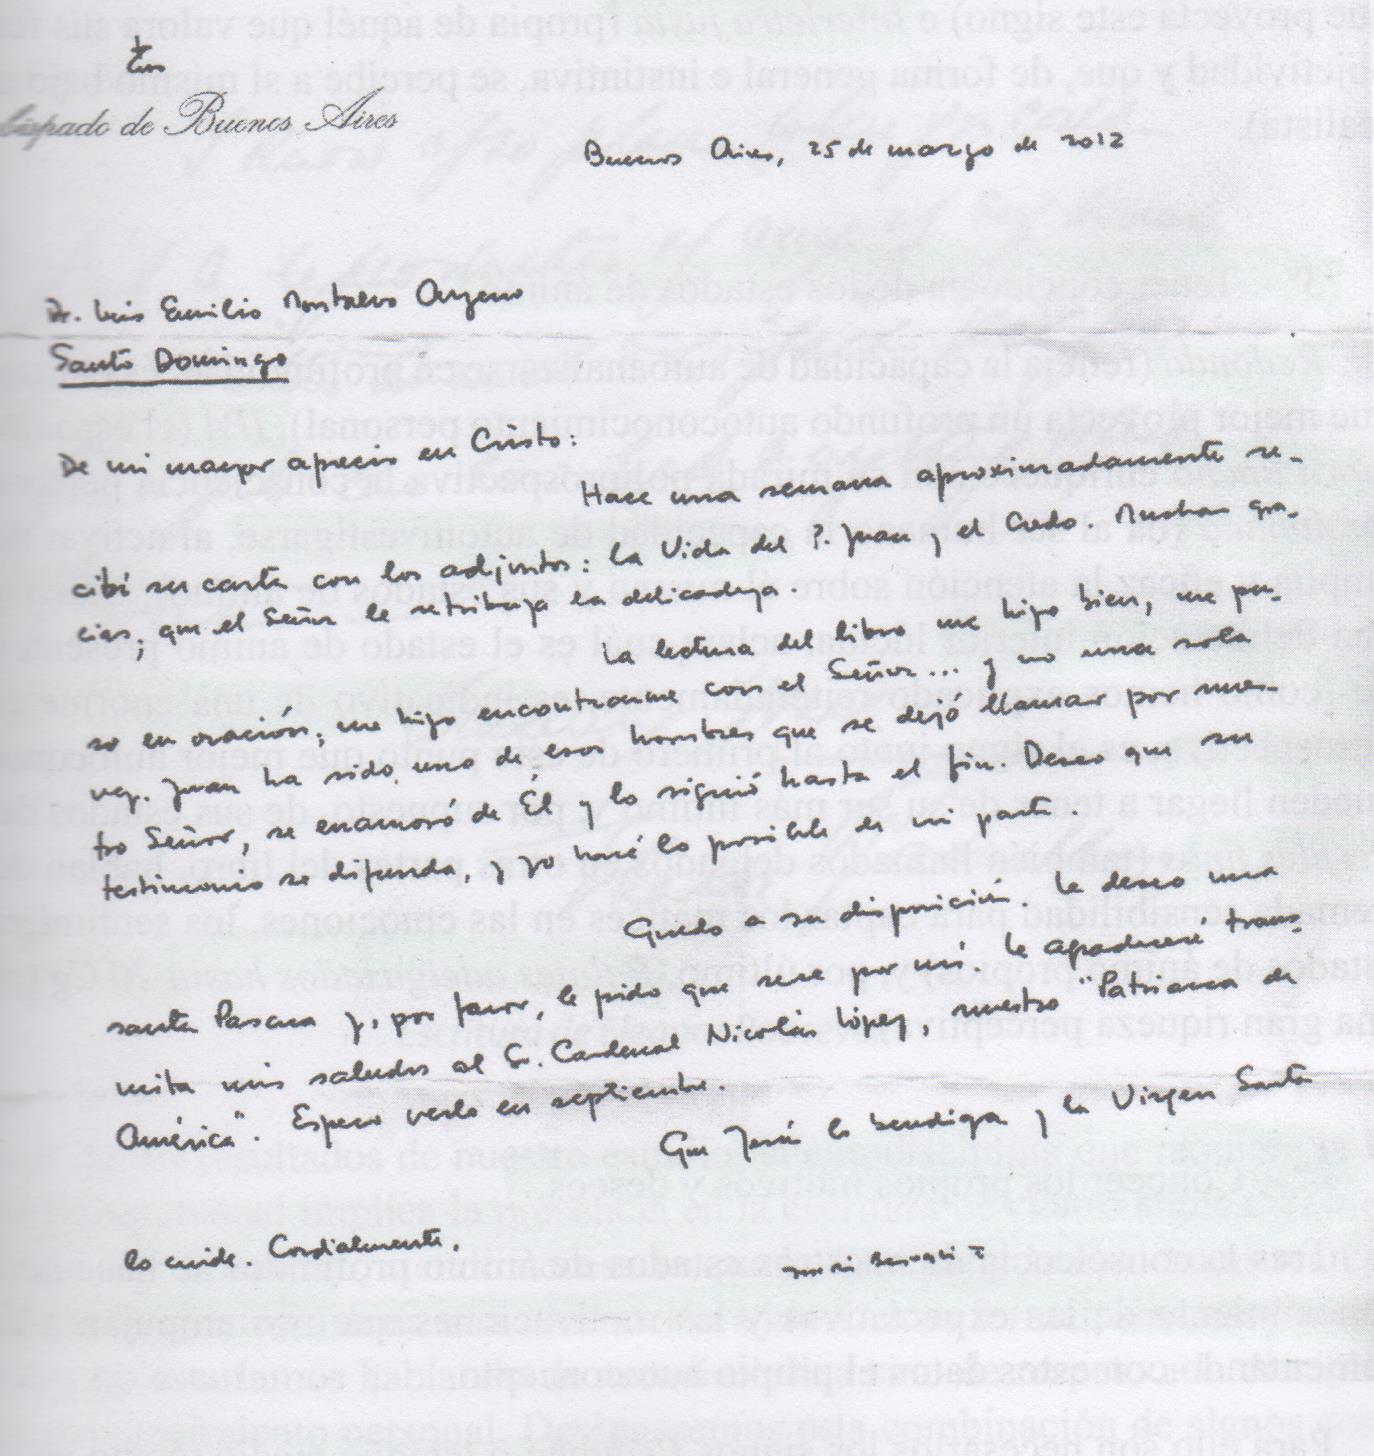 bispado de Buenos Aires
Buenos Aires, 25 de marzo de 2012
Dr. Luis Emilio Montalvo Arzeno
Santo Domingo
De mi mayor aprecio en Cristo:
Hace una semana aproximadamente re-
cibí su carta con los adjuntos: la Vida del P. Juan y el Credo. Muchas gra-
cias; que el Señor le retribuya la delicadeza.
La lectura del libro me hizo bien, me pu-
so en oración; me hizo encontrarme con el Señor... y no una sola
vez. Juan ha sido uno de esos hombres que se dejó llamar por nues-
tro Señor, se enamoró de Él y lo siguió hasta el fin. Deseo que su
testimonio se difunda, y yo haré lo posible de mi parte.
Quedo a su disposición. Le deseo una
santa Pascua y, por favor, le pido que rece por mí. Le agradeceré trans-
mita mis saludos al Sr. Cardenal Nicolás López, nuestro "Patriarca de
América". Espero verlo en septiembre.
Que Jesús lo bendiga y la Virgen Santa
lo cuide. Cordialmente,